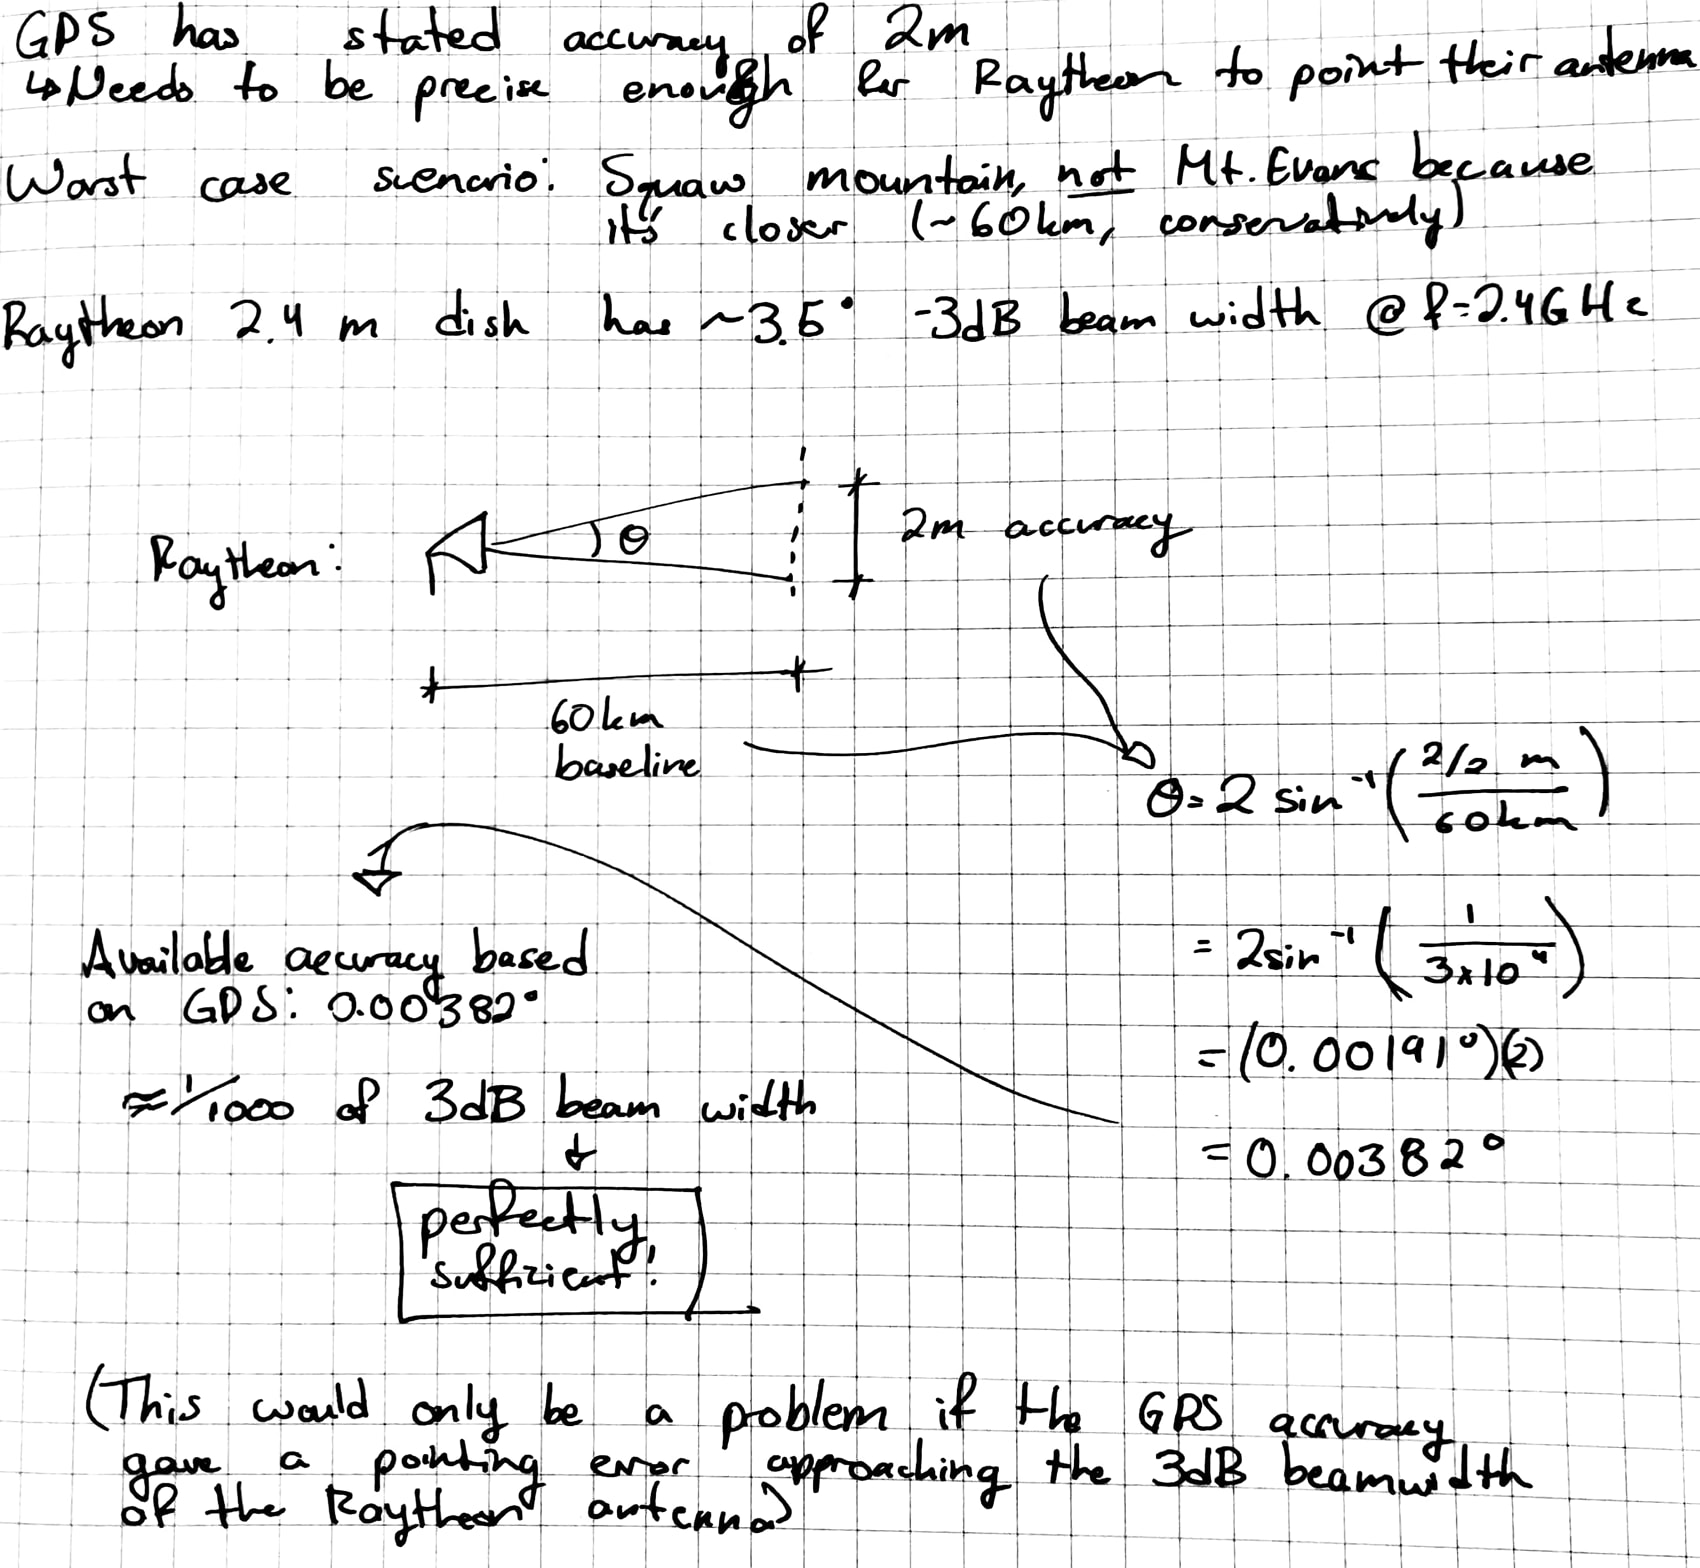 GPS has stated accuracy of 2m
↳Needs to be precise enough for Raytheon to point their antenna
Worst case scenario: Squaw mountain, not Mt. Evans because
it's closer (~60km, conservatively)
Raytheon 2.4 m dish has ~3.5° -3dB beam width @ f=2.4GHz
Raytheon:
θ
2m accuracy
60km
baseline
θ= 2 sin⁻¹(2/2 m / 60km)
= 2sin⁻¹(1 / 3x10⁴)
= (0.00191°)(2)
= 0.00382°
Available accuracy based
on GPS: 0.00382°
≈ 1/1000 of 3dB beam width
perfectly
sufficient!
(This would only be a problem if the GPS accuracy
gave a pointing error approaching the 3dB beamwidth
of the Raytheon antenna)